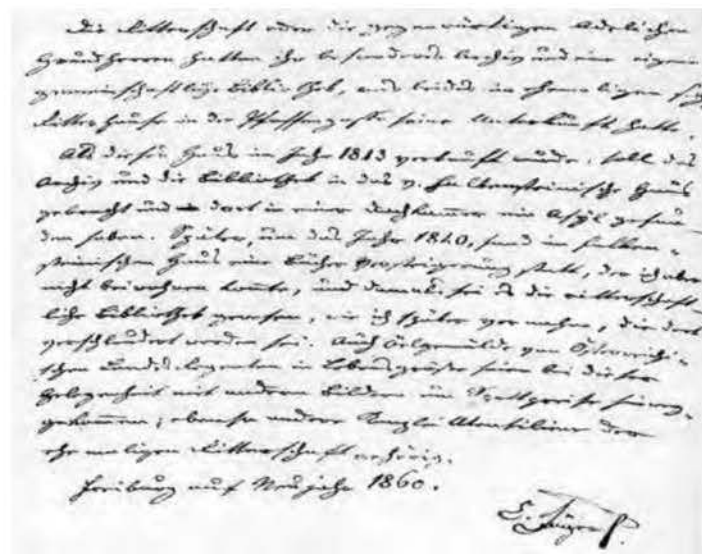 Die Ritterschaft oder die gegenwärtigen Adelichen
Grundherren hatten ihr besonderes Archiv und eine eigene
gemeinschaftliche Bibliothek, was beides im ehemaligen
Ritterhause in der Pfaffengasse seine Unterkunft hatte.
Als dieses Haus im Jahr 1813 verkauft wurde, soll das
Archiv und die Bibliothek in das v. Falkensteinische Haus
gebracht und dort in einer Dachkammer ein Asÿl gefun-
den haben. Später, um das Jahr 1840, fand im Falken-
steinischen Haus eine Bücher Versteigerung statt, der ich aber
nicht beiwohnen konnte, und damals sei es die ritterschaft-
liche Bibliothek gewesen, wie ich später vernahm, die dort
verschleudert worden sei. Auch Ölgemälde von Österreichi-
schen Landes Regenten in Lebensgröße seien bei dieser
Gelegenheit mit andern Bildern um Spottpreise
gekommen; ebenso andere Kanzlei Utensilien der
ehemaligen Ritterschaft gehörig.
Freiburg auf Neujahr 1860.